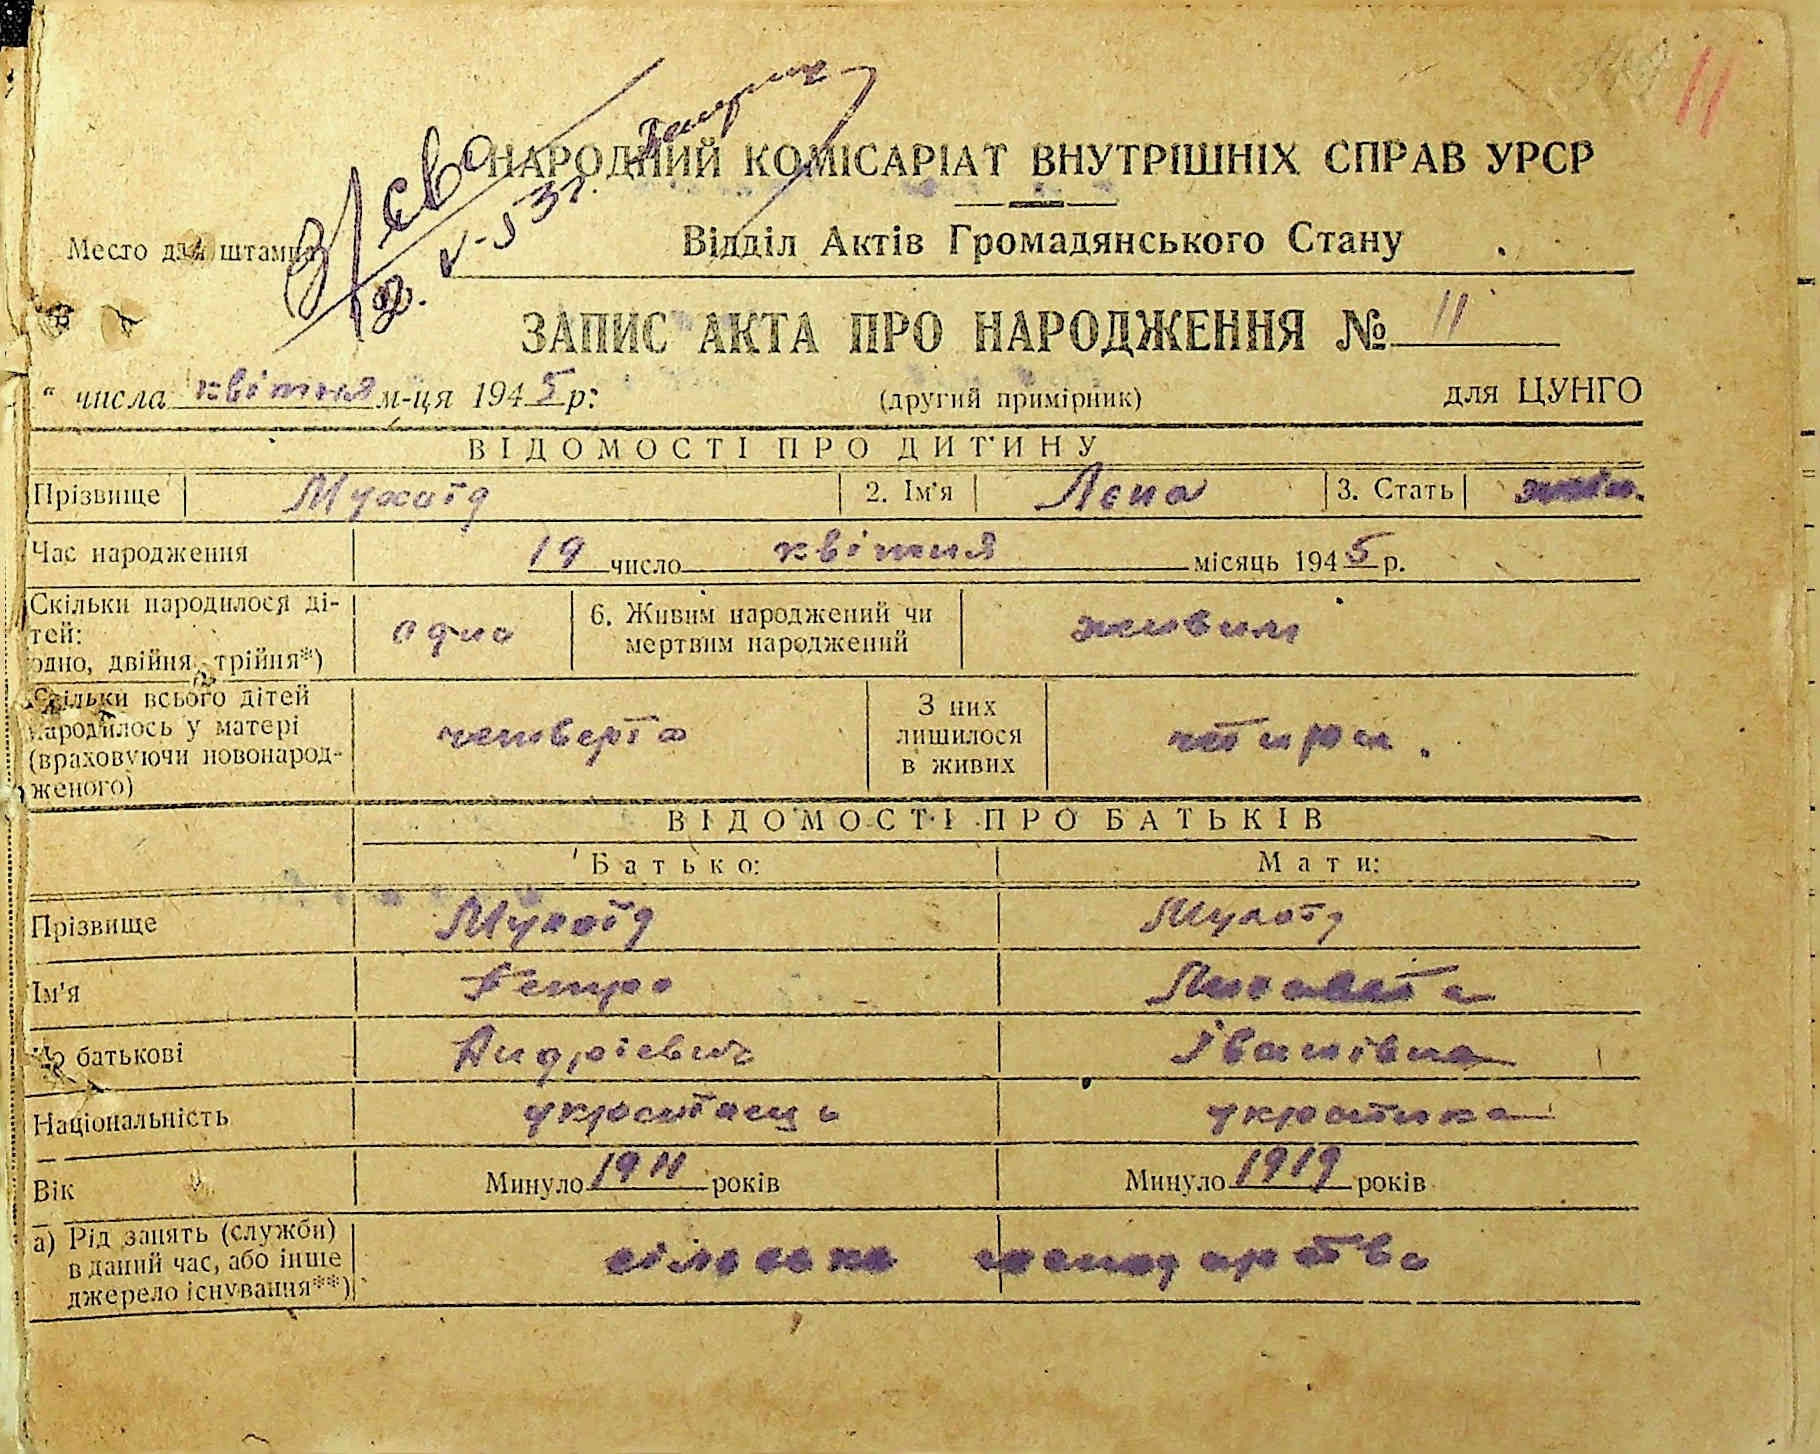 11
НАРОДНИЙ КОМІСАРІАТ ВНУТРІШНІХ СПРАВ УРСР
Место для штампа
Відділ Актів Громадянського Стану
ЗАПИС АКТА ПРО НАРОДЖЕННЯ № 11
" числа квітня м-ця 1945 р: (другий примірник) для ЦУНГО
ВІДОМОСТІ ПРО ДИТИНУ
Прізвище Мухоїд 2. Ім'я Лєна 3. Стать жін.
Час народження 19 число квітня місяць 1945 р.
Скільки народилося ді-
тей:
одно, двійня, трійня*) одно 6. Живим народжений чи
мертвим народжений живим
Скільки всього дітей
народилось у матері
(враховуючи новонарод-
женого) четверта З них
лишилося
в живих чотири.
ВІДОМОСТІ ПРО БАТЬКІВ
Батько: Мати:
Прізвище Мухоїд Мухоїд
Ім'я Петро Лизавета
По батькові Андрієвич Іванівна
Національність українець українка
Вік Минуло 1911 років Минуло 1919 років
а) Рід занять (служби)
в даний час, або інше
джерело існування**) сільське господарство